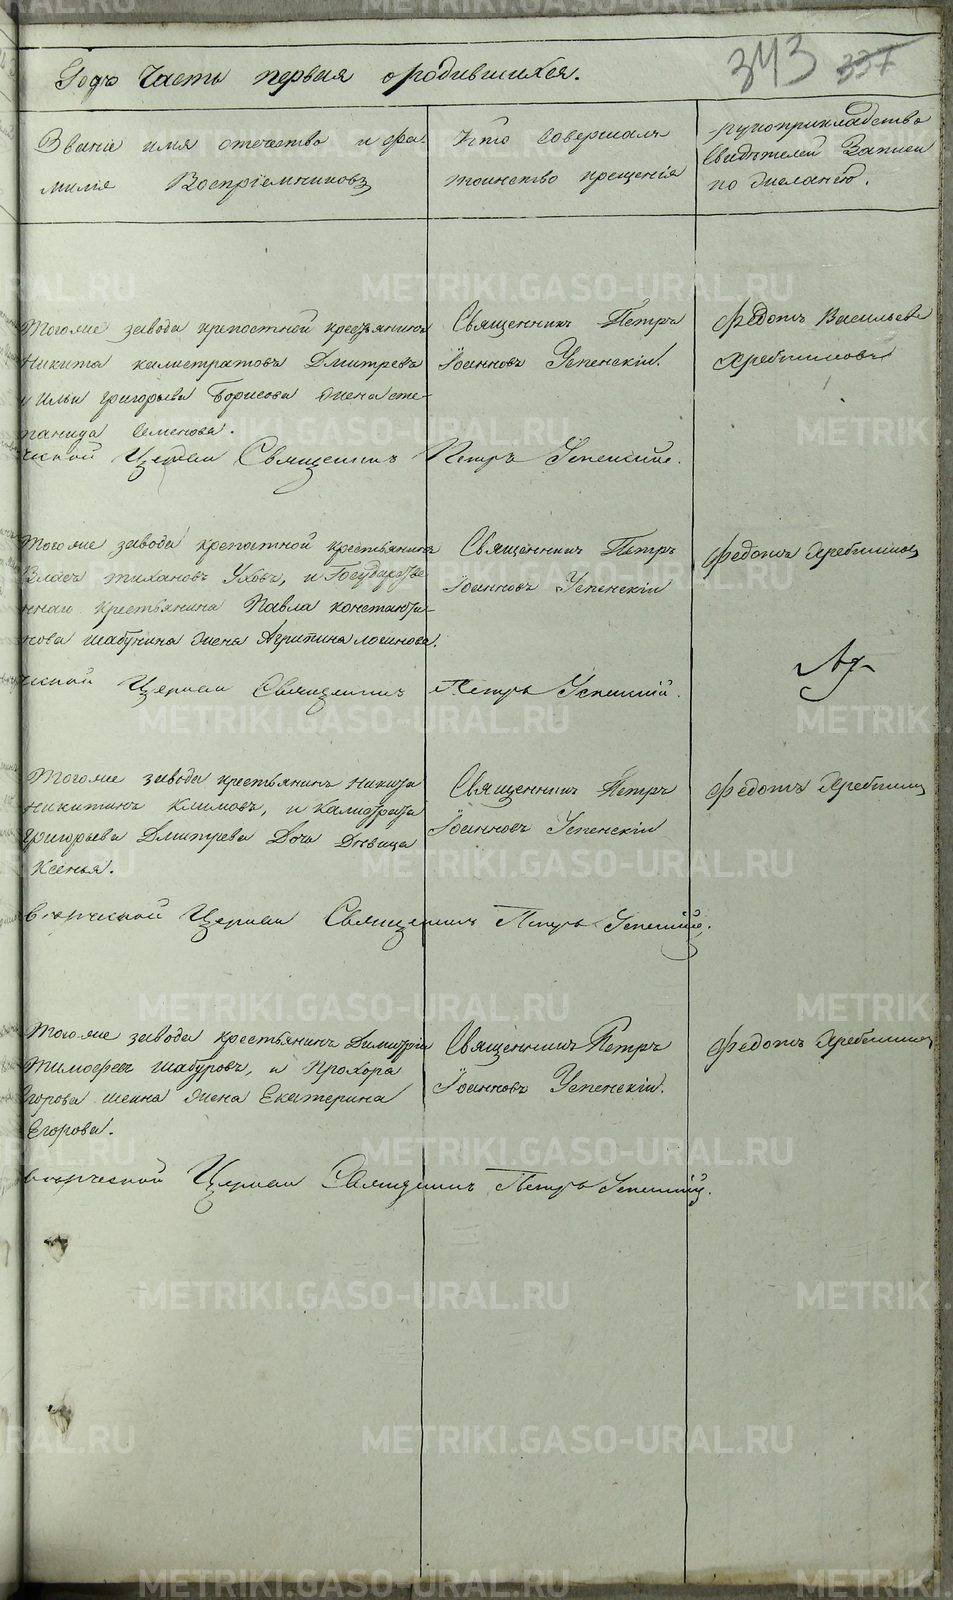 343 337
Годъ Часть первая о родившихся.
Званіе имя отечество и фа-
миліе Воспріемниковъ
Кто совершалъ
таинство крещенія
рукоприкладство
свидѣтелей Записи
по желанію.
Тогоже завода крепостной крестьянинъ
Никита калистратовъ Дмитревъ
и Ильи григорьева Борисова жена сте-
панида семенова.
Священникъ Петръ
Іоанновъ Успенскій.
Федотъ Васильевъ
Хребтиковъ
Церкви Священникъ Петръ Успенскій.
Тогоже завода крепостной крестьянинъ
Власъ тихановъ Уховъ, и Государстве
ннаго крестьянина Павла константи-
нова шабунина жена Агрипина логинова.
Священникъ Петръ
Іоанновъ Успенскій
Федотъ
Церкви Священникъ Петръ Успенскій.
Тогоже завода крестьянинъ Никита
Никитинъ Климовъ, и Калистрата
Григорьева Дмитрева Дочь Дѣвица
Ксенья.
Священникъ Петръ
Іоанновъ Успенскій
Федотъ
Церкви Священникъ Петръ Успенскій.
Тогоже завода крестьянинъ Димитрій
Тимофеевъ шабуровъ, и Прохора
Егорова шеина жена Екатерина
Егорова.
Священникъ Петръ
Іоанновъ Успенскій.
Федотъ
Церкви Священникъ Петръ Успенскій.
METRIKI.GASO-URAL.RU